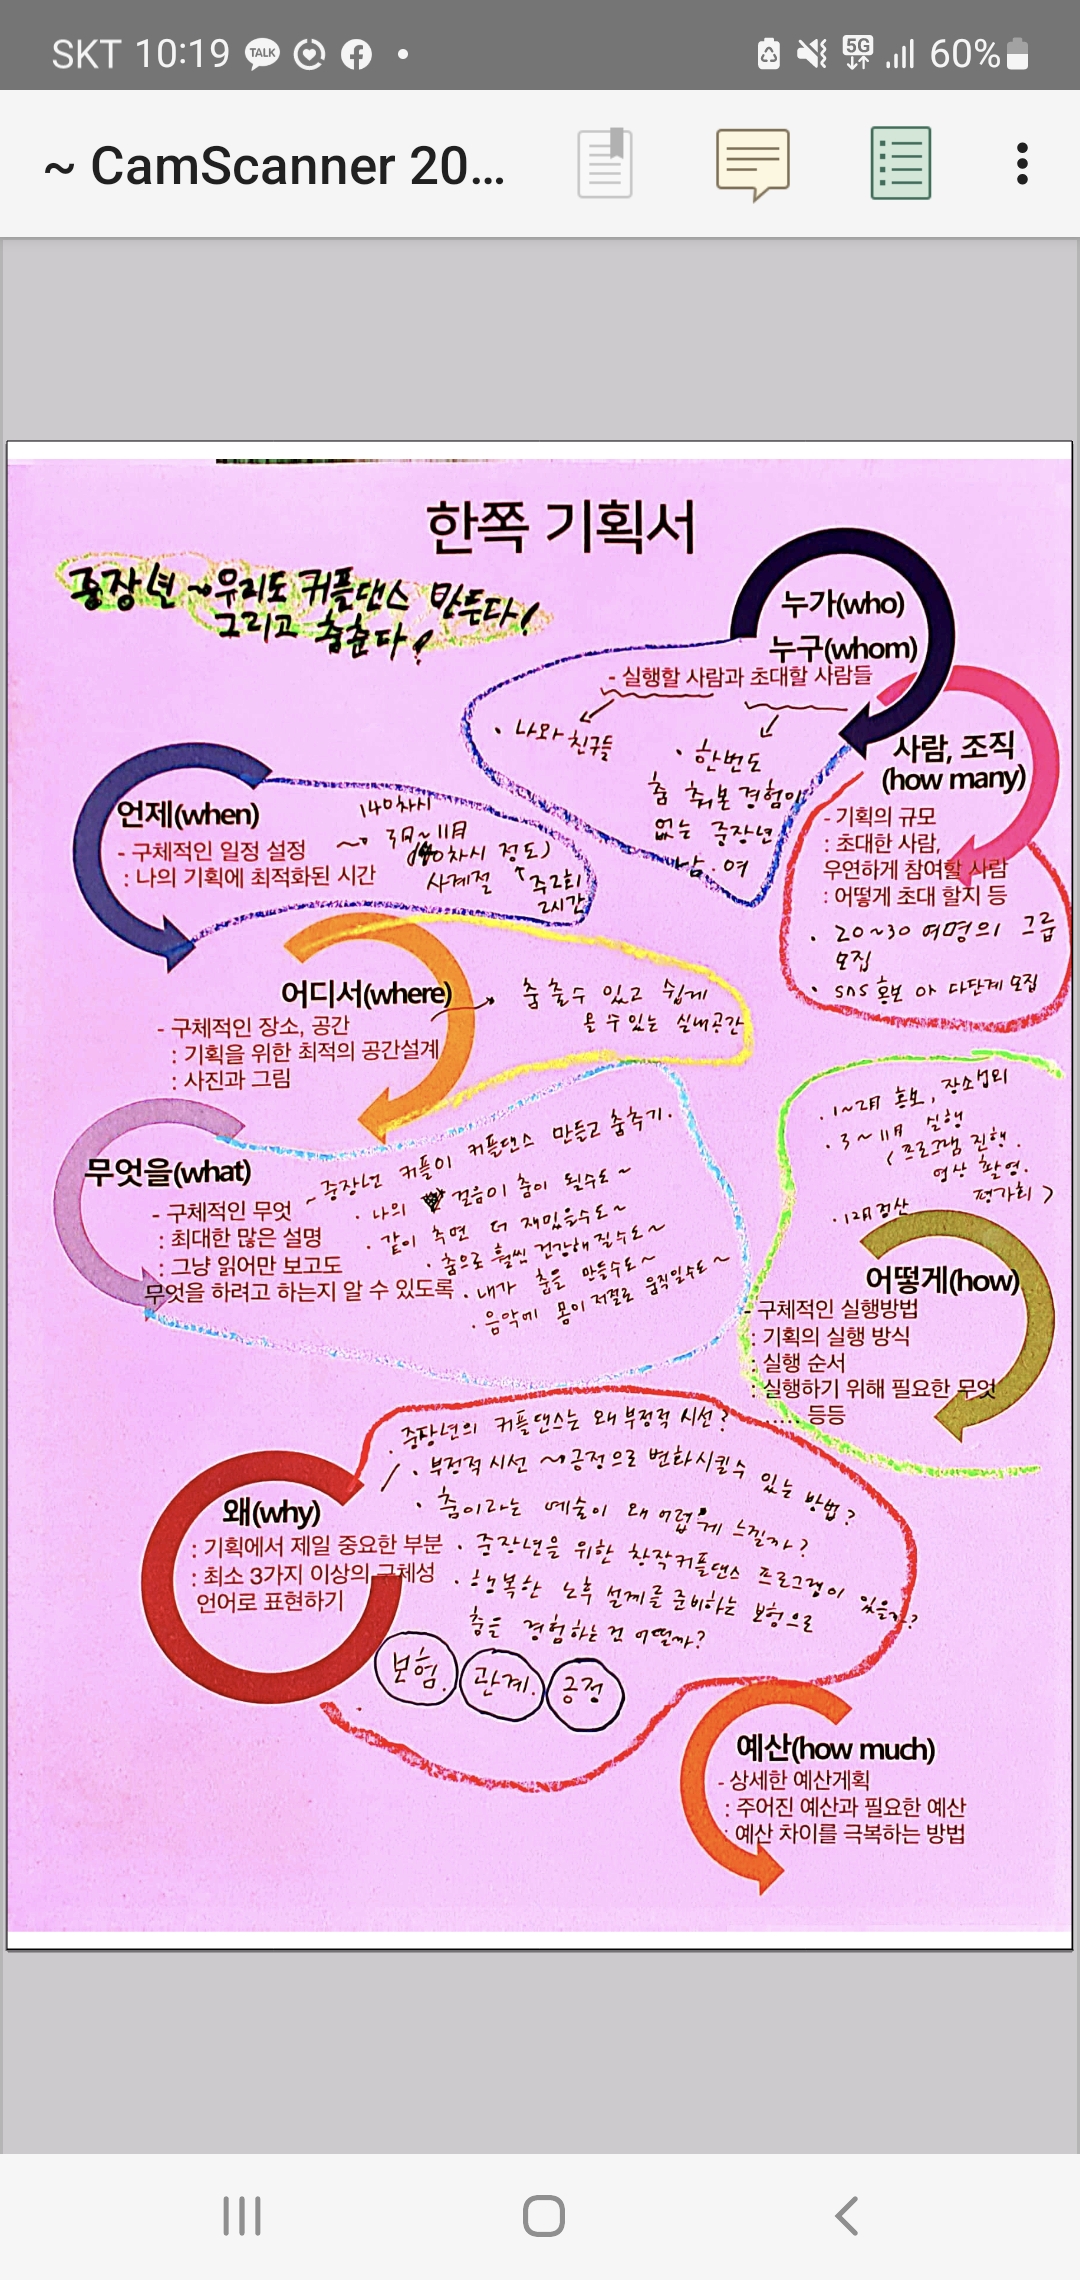 SKT 10:19 TALK
5G 60%
~ CamScanner 20...
한쪽 기획서
중장년~우리도 커플댄스 만든다!
그리고 춤춘다!
누가(who)
누구(whom)
- 실행할 사람과 초대할 사람들
· 나와 친구들
· 한번도
춤 춰본 경험이
없는 중장년
남·여
사람, 조직
(how many)
- 기획의 규모
: 초대한 사람,
우연하게 참여할 사람
: 어떻게 초대 할지 등
· 20~30 여명의 그룹
모집
· SNS 홍보 or 다단계 모집
언제(when)
- 구체적인 일정 설정
: 나의 기획에 최적화된 시간
140차시
~ 3월~11월
차시 정도)
사계절 ↑주2회
2시간
어디서(where)
- 구체적인 장소, 공간
: 기획을 위한 최적의 공간설계
: 사진과 그림
춤 출수 있고 쉽게
올 수 있는 실내공간
무엇을(what)
- 구체적인 무엇
: 최대한 많은 설명
: 그냥 읽어만 보고도
무엇을 하려고 하는지 알 수 있도록
~ 중장년 커플이 커플댄스 만들고 춤추기.
· 나의 걸음이 춤이 될수도~
· 같이 추면 더 재밌을수도~
· 춤으로 훨씬 건강해질수도~
· 내가 춤을 만들수도~
· 음악에 몸이 저절로 움직일수도~
· 1~2월 홍보, 장소섭외
· 3~11월 실행
(프로그램 진행.
영상 촬영.
평가회)
· 12월 정산
어떻게(how)
- 구체적인 실행방법
: 기획의 실행 방식
: 실행 순서
: 실행하기 위해 필요한 무엇
..... 등등
왜(why)
: 기획에서 제일 중요한 부분
: 최소 3가지 이상의 구체성
언어로 표현하기
· 중장년의 커플댄스는 왜 부정적 시선?
· 부정적 시선 ~ 긍정으로 변화시킬수 있는 방법?
· 춤이라는 예술이 왜 어렵게 느낄까?
· 중장년을 위한 창작커플댄스 프로그램이 있을까?
· 행복한 노후 설계를 준비하는 보험으로
춤을 경험하는 건 어떨까?
보험. 관계. 긍정
예산(how much)
- 상세한 예산계획
: 주어진 예산과 필요한 예산
: 예산 차이를 극복하는 방법